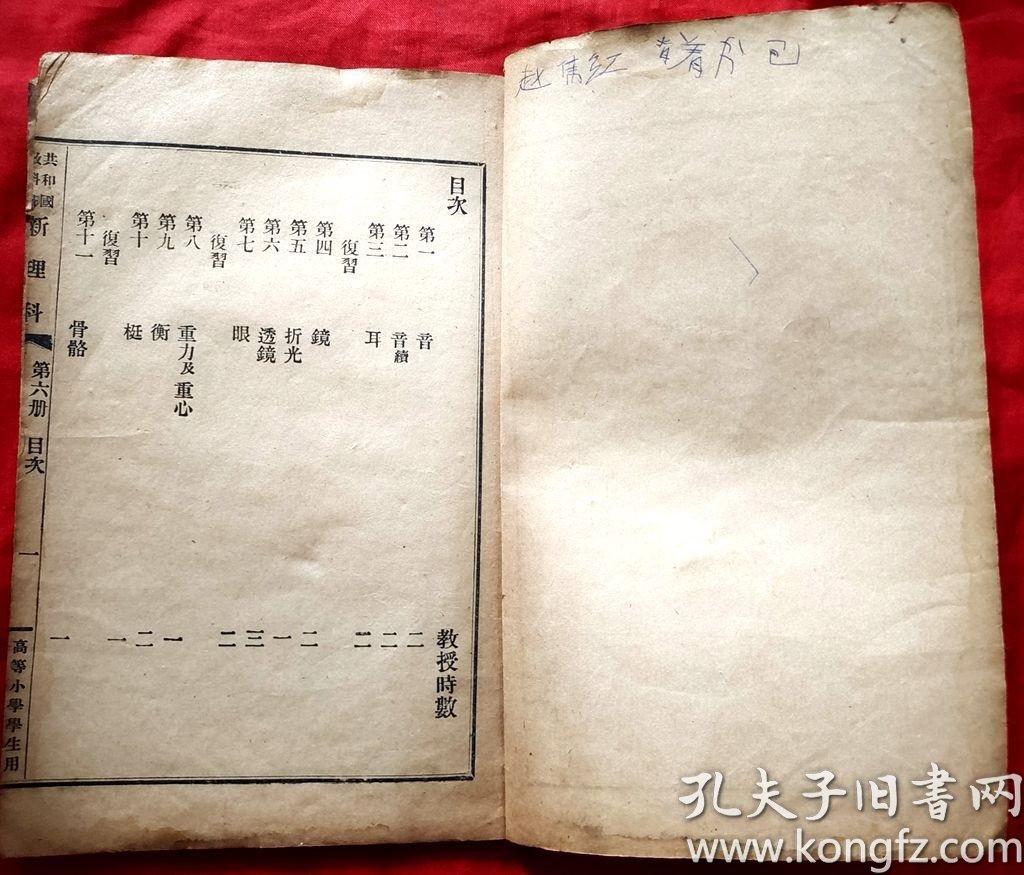 赵 红
目次 教授時數
第一 音 二
第二 音續 二
第三 耳 二
復習
第四 鏡 二
第五 折光 一
第六 透鏡 三
第七 眼 二
復習
第八 重力及重心 一
第九 衡 二
第十 梃 一
復習
第十一 骨骼 一
共和國
教科
新理科 第六册 目次 一 高等小學學生用
孔夫子旧書网
www.kongfz.com